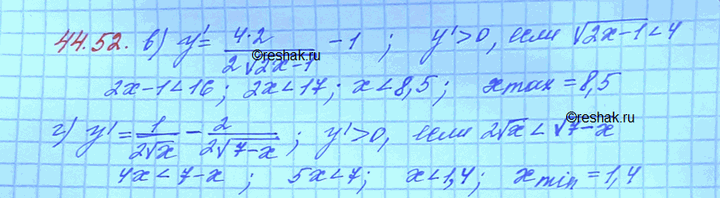 44.52. в) y' = 4·2 / 2√(2x-1) - 1 ; y' > 0, если √(2x-1) < 4
©reshak.ru
2x-1<16; 2x<17; x<8,5; x max = 8,5
©reshak.ru
г) y' = 1 / 2√x - 2 / 2√(7-x) ; y' > 0, если 2√x < √(7-x)
4x < 7-x ; 5x<7; x<1,4; x min = 1,4